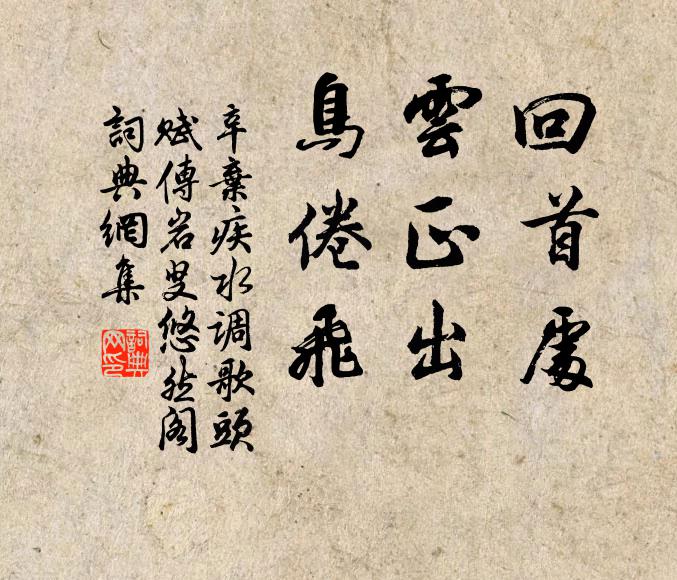 回首處
雲正出
鳥倦飛
辛棄疾水调歌頭
赋傅岩叟悠然阁
詞典網集
詞典网印